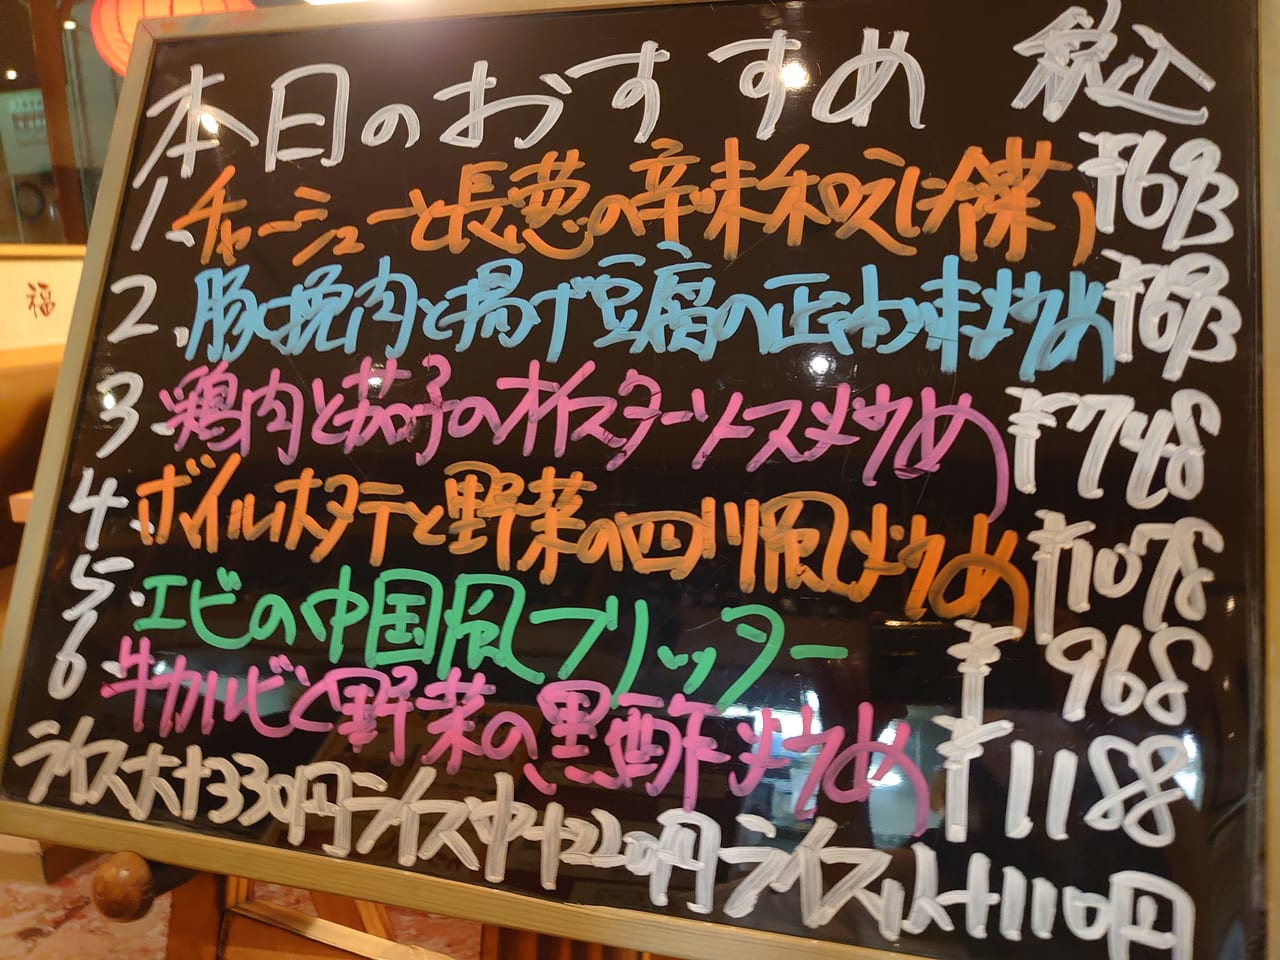 本日のおすすめ 税込
1. チャーシューと長葱の辛味和え(冷菜) ¥693
2. 豚挽肉と揚げ豆腐の正油味炒め ¥693
3. 鶏肉と茄子のオイスターソース炒め ¥748
4. ボイルホタテと野菜の四川風炒め ¥1078
5. エビの中国風フリッター ¥968
6. 牛カルビと野菜の黒酢炒め ¥1188
ライス大+330円 ライス中+220円 ライス小+110円
福